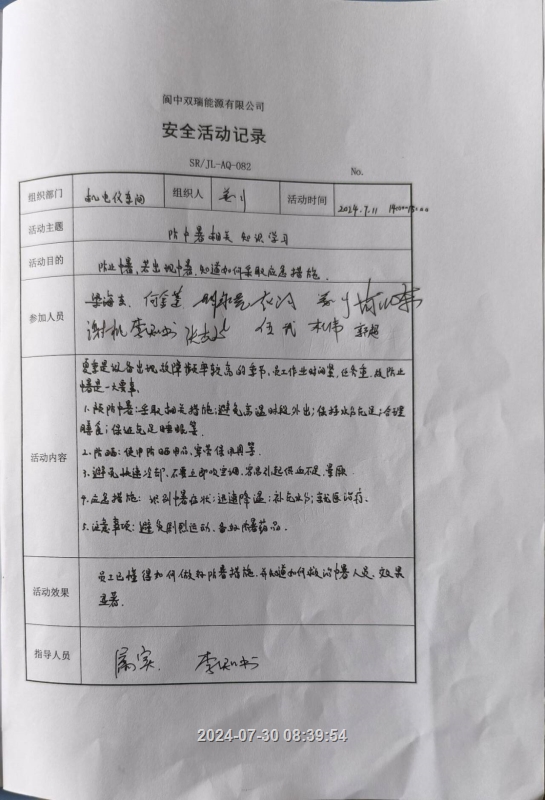 阆中双瑞能源有限公司
安全活动记录
SR/JL-AQ-082 No.
组织部门 机电仪车间 组织人 活动时间 2024.7.11 14:00-15:00
活动主题 防中暑相关知识学习
活动目的 防止中暑,若出现中暑,知道如何采取应急措施.
参加人员 梁海 何金莲
谢帆 李 张 任 杜伟 郭超
夏季是设备出现故障频率较高的季节,员工作业时间紧,任务重,故防止
中暑是一大要事.
1.预防中暑:采取相关措施;避免高温时段外出;保持水分充足;合理
膳食;保证充足睡眠等.
活动内容 2.防晒:使用防晒用品,穿 等.
3.避免快速冷却,不要立即吹空调,容易引起供血不足,晕厥.
4.应急措施:识别中暑症状;迅速降温;补充水分; 就医治疗.
5.注意事项:避免剧烈运动、备好防暑药品.
活动效果 员工已懂得如何做好防暑措施,并知道如何救治中暑人员,效果
显著.
指导人员 属实. 李
2024-07-30 08:39:54